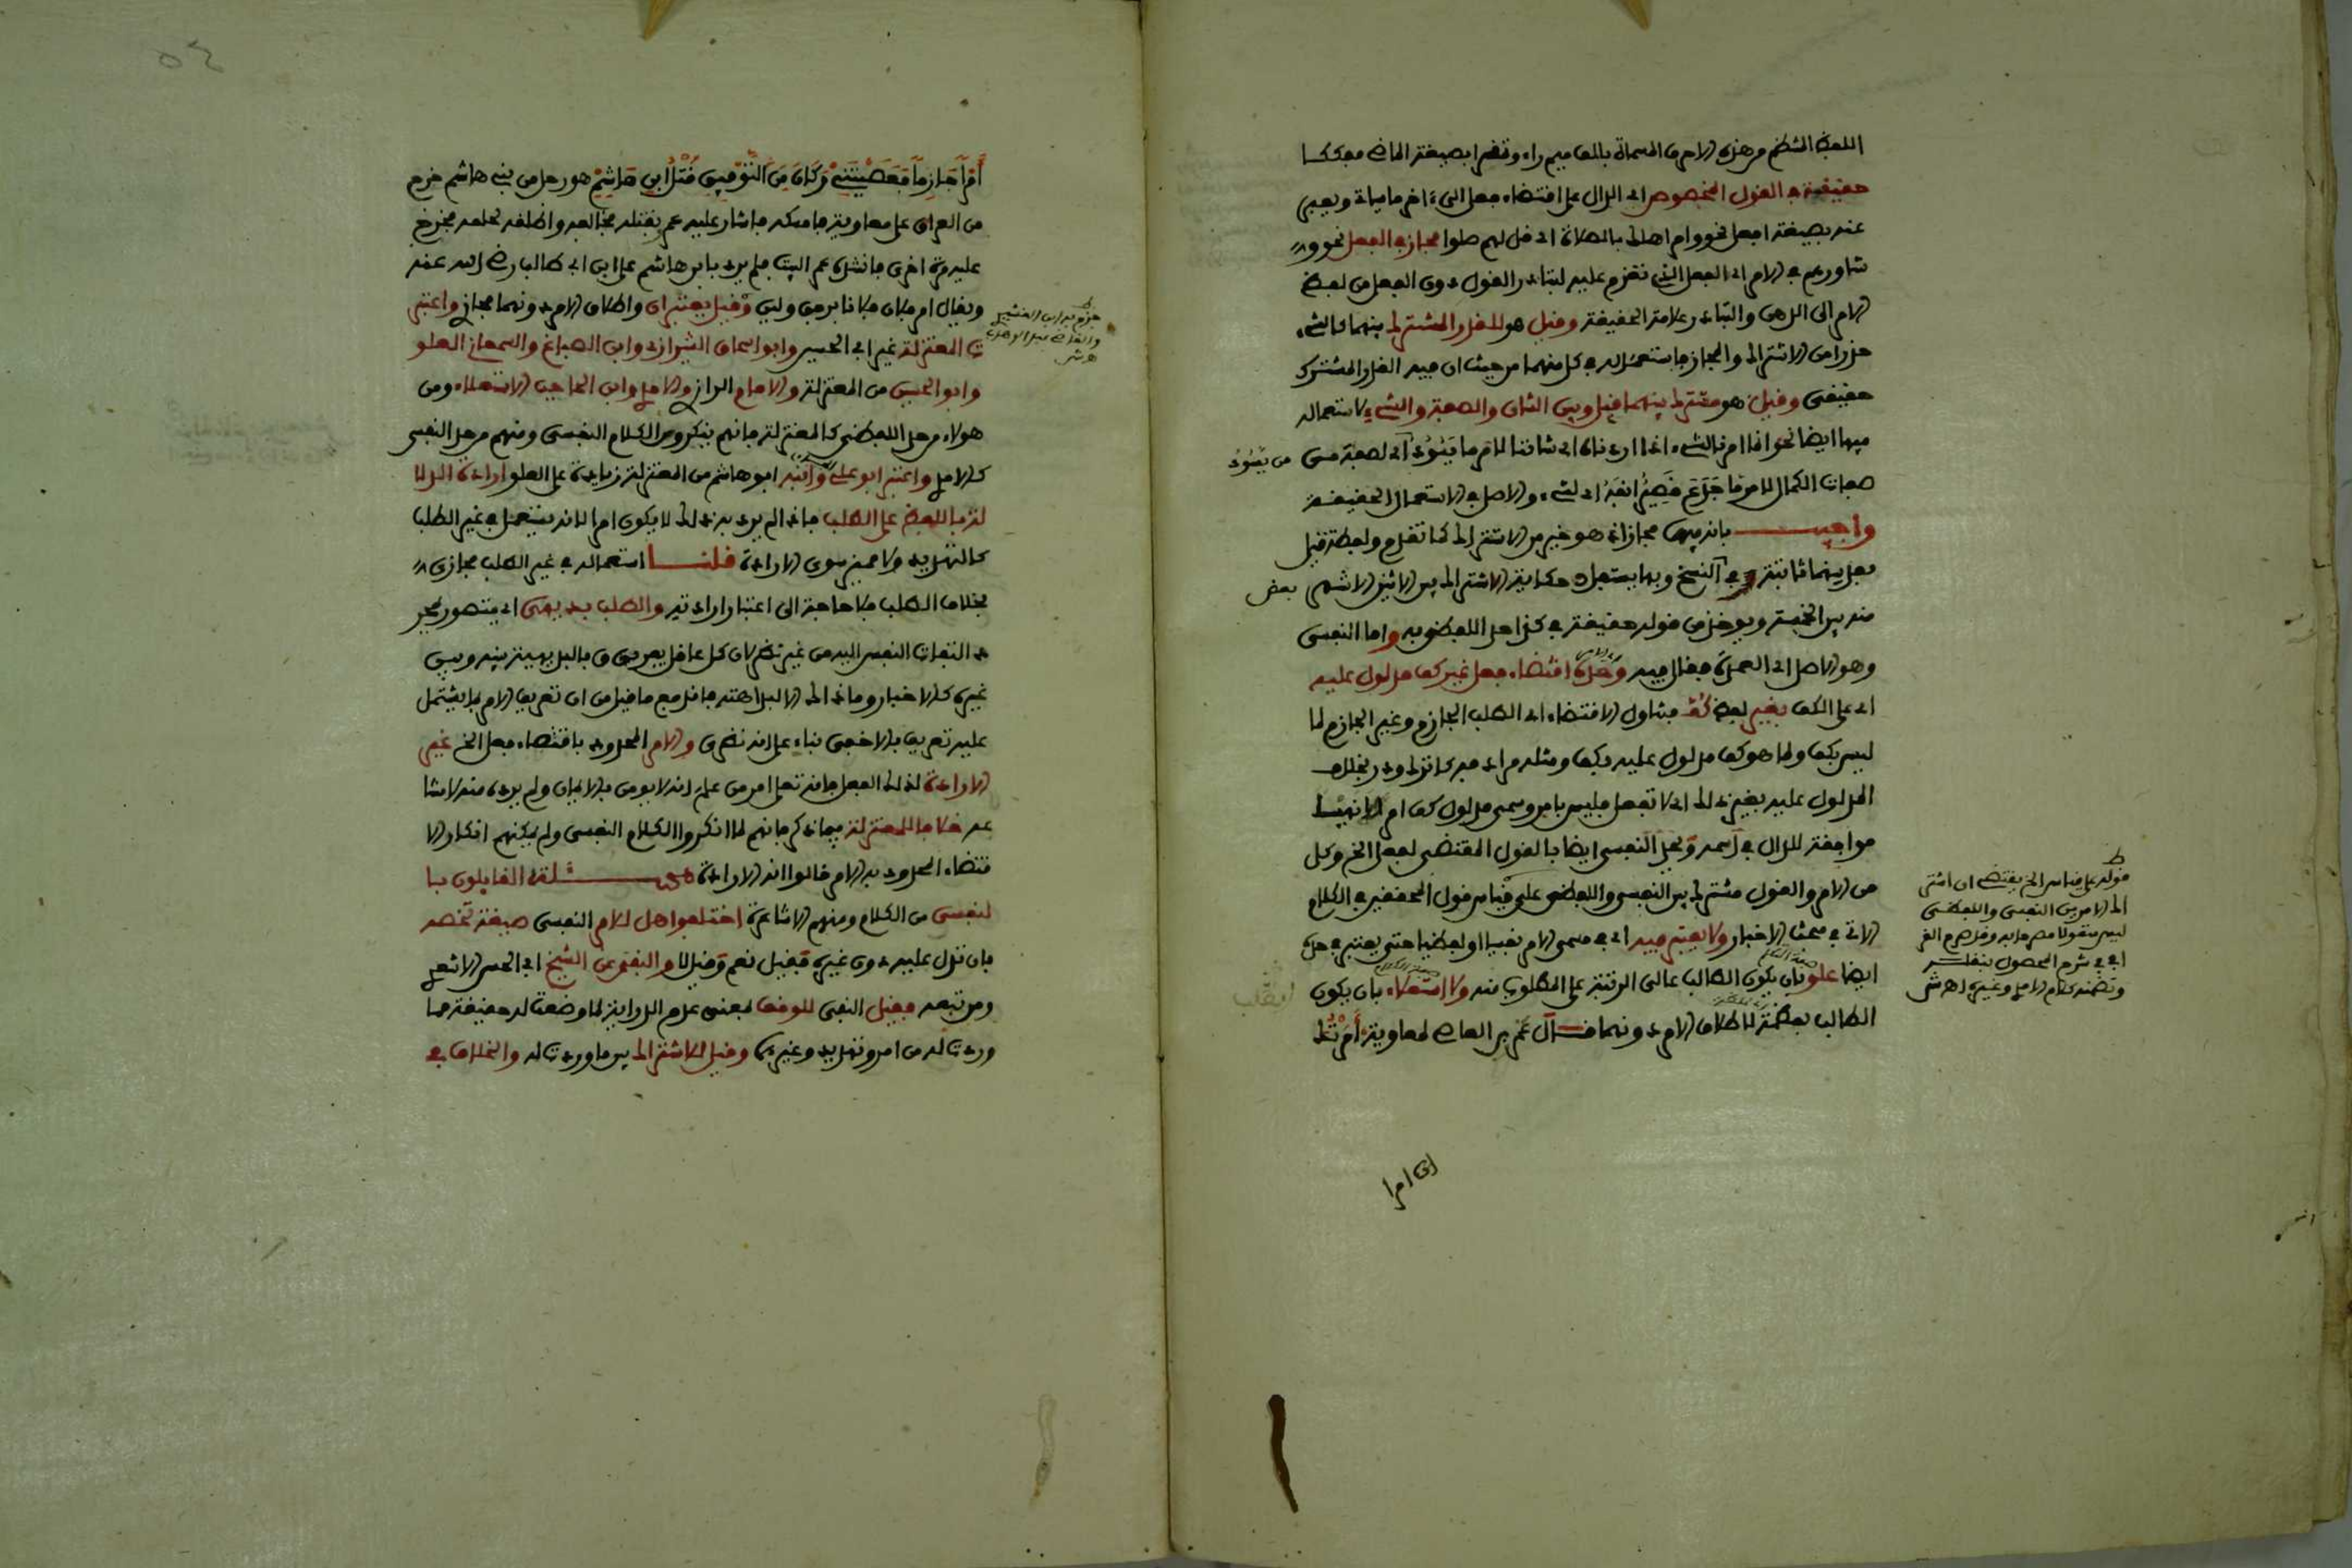 اللفظ المنتظم من هذه الاحرف المسماة بالف ميم راء وتقرا بصيغة الماضي مفككا
حقيقة في القول المخصوص اي الدال على اقتضاء فعل الى ءاخر ما ياتي ويعبر
عنه بصيغة افعل نحو وامر اهلك بالصلاة اي قل لهم صلوا مجاز في الفعل نحو و
شاورهم في الامر اي الفعل الذي تعزم عليه لتبادر القول دون الفعل من لفظ
الامر الى الذهن والتبادر علامة الحقيقة وقيل هو للقدر المشترك بينهما كالشيء
حذرا من الاشتراك والمجاز فاستعماله في كل منهما من حيث ان فيه القدر المشترك
حقيقي وقيل هو مشترك بينهما قيل وبين الشان والصفة والشيء لاستعماله
فيها ايضا نحو انما امرنا لشيء اذا اردناه اي شاننا لامر ما يسود اي لصفة من من يسود
صفات الكمال لامر ما جدع قصير انفه اي لشيء والاصل في الاستعمال الحقيقة
واجيب بانه فيها مجاز اذ هو خير من الاشتراك كما تقدم ولفظة قيل
بعد بينهما ثابتة في بعض النسخ وبها يستفاد حكاية الاشتراك بين الاثنين الاشهر
منه بين الخمسة ويوخذ من قوله حقيقة في كذا حد اللفظي به واما النفسي
وهو الاصل اي العمدة فقال فيه وحده اقتضاء فعل غير كف مدلول عليه
اي على الكف بغير لفظ كف فتناول الاقتضاء اي الطلب الجازم وغير الجازم لما
ليس بكف ولما هو كف مدلول عليه بكف ومثله مرادفه كاترك وذر بخلاف
المدلول عليه بغير ذلك اي لا تفعل فليس بامر وسمي مدلول كف امرا لا نهيا
موافقة للدال في اسمه ويحد النفسي ايضا بالقول المقتضي لفعل الخ وكل
من الامر والقول مشترك بين النفسي واللفظي على قياس قول المحققين في الكلام
الاتي في مبحث الاخبار ولا يعتبر فيه اي في مسمى الامر نفسيا او لفظيا حتى يعتبر في حده
ايضا علو بان يكون الطالب عالي الرتبة على المطلوب منه ولا استعلاء بان يكون
الطالب بعظمة لاطلاق الامر دونهما قال عمرو بن العاص لمعاوية أمرتك
قوله على قياس الخ يقتضي ان اشترا
ك الامر بين النفسي واللفظي
ليس منقولا مصرحا به وقد صرح القر
افي في شرح المحصول بنقله
وتضمنه كلام الامدي وغيره اهـ ش
أمرا جازما فعصيتني وكان من التوفيق قتل ابن هاشم هو رجل من بني هاشم خرج
من العراق على معاوية فامسكه فاشار عليه عمرو بقتله فخالفه واطلقه لحلمه فخرج
عليه مرة اخرى فانشده عمرو البيت فلم يرد بابن هاشم علي ابن ابي طالب رضي الله عنه
ويقال امر فلان فلانا برفق ولين وقيل يعتبران واطلاق الامر دونهما مجازي واعتبر
جزم به ابن القشيري
والقاضي عبد الوهاب
اهـ ش
ت المعتزلة غير ابي الحسين وابو اسحاق الشيرازي وابن الصباغ والسمعاني العلو
وابو الحسين من المعتزلة والامام الرازي والامدي وابن الحاجب الاستعلاء ومن
هولاء من حد اللفظي كالمعتزلة فانهم ينكرون الكلام النفسي ومنهم من حد النفسي
كالامدي واعتبر ابو علي وابنه ابو هاشم من المعتزلة زيادة على العلو ارادة الدلا
لة باللفظ على الطلب فاذا لم يرد به ذلك لا يكون امرا لانه يستعمل في غير الطلب
كالتهديد ولا مميز سوى الارادة قلنا استعماله في غير الطلب مجازي
بخلاف الطلب فلا حاجة الى اعتبار ارادته والطلب بديهي اي متصور بمجر
د التفات النفس اليه من غير نظر لان كل عاقل يفرق بالبديهة بينه وبين
غيره كالاخبار وما ذاك الا لبداهته فاندفع ما قيل من ان تعريف الامر بما يشتمل
عليه تعريف بالاخفى بناء على انه نظري والامر المحدود باقتضاء فعل الخ غير
الارادة لذلك الفعل فانه تعلى امر من علم انه لا يومن بالايمان ولم يرده منه لامتنا
عه خلافا للمعتزلة فيما ذكر فانهم لما انكروا الكلام النفسي ولم يمكنهم انكار الا
قتضاء المحدود به الامر قالوا انه الارادة مسئلة القايلون با
لنفسي من الكلام ومنهم الاشاعرة اختلفوا هل للامر النفسي صيغة تخصه
بان تدل عليه دون غيره فقيل نعم وقيل لا والنفي عن الشيخ ابي الحسن الاشعري
ومن تبعه فقيل النفي للوقف بمعنى عدم الدراية لما وضعت له حقيقة مما
وردت له من امر وتهديد وغيرهما وقيل للاشتراك بين ما وردت له والخلاف في